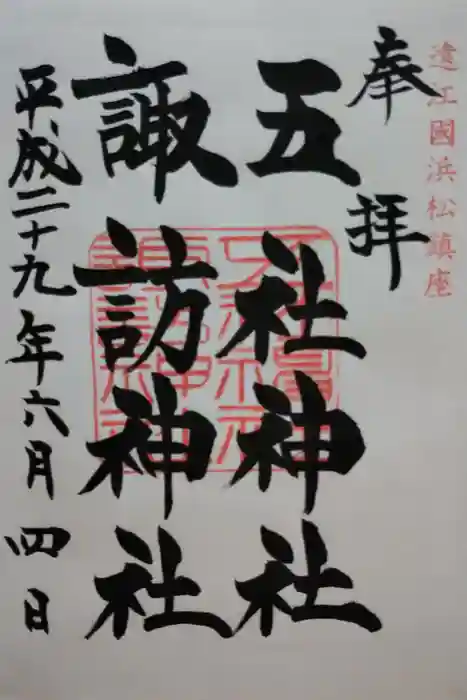 遠江國浜松鎮座
奉拝
五社神社
諏訪神社
平成二十九年六月四日